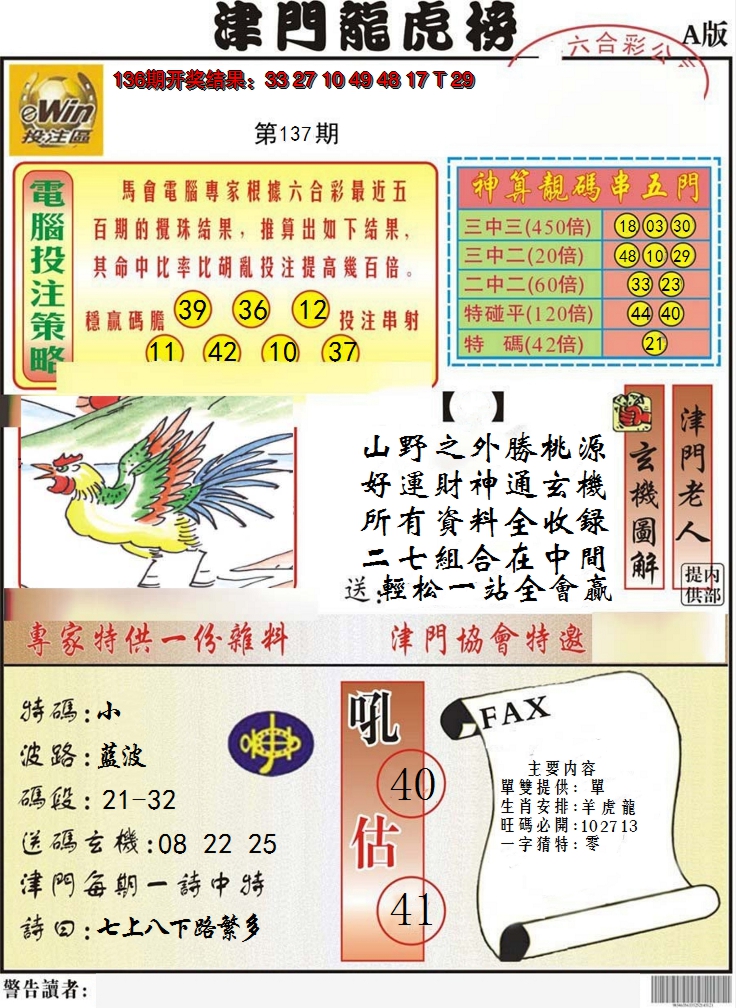 津門龍虎榜
A版
六合彩公
136期开奖结果：33 27 10 49 48 17 T 29
eWin
投注區
第137期
電腦投注策略
馬會電腦專家根據六合彩最近五
百期的攪珠结果，推算出如下结果，
其命中比率比胡亂投注提高幾百倍。
穩贏碼膽 39 36 12 投注串射
11 42 10 37
神算靚碼串五門
三中三(450倍) 18 03 30
三中二(20倍) 48 10 29
二中二(60倍) 33 23
特碰平(120倍) 44 40
特 碼(42倍) 21
【 】
山野之外勝桃源
好運財神通玄機
所有資料全收録
二七組合在中間
送:輕松一站全會贏
玄機圖解
津門老人
内部提供
專家特供一份雜料
津門協會特邀
特碼:小
波路:藍波
碼段:21-32
送碼玄機:08 22 25
津門每期一詩中特
詩曰:七上八下路繁多
吼
40
估
41
FAX
主要内容
單雙提供：單
生肖安排:羊虎龍
旺碼必開:102713
一字猜特：零
警告讀者：